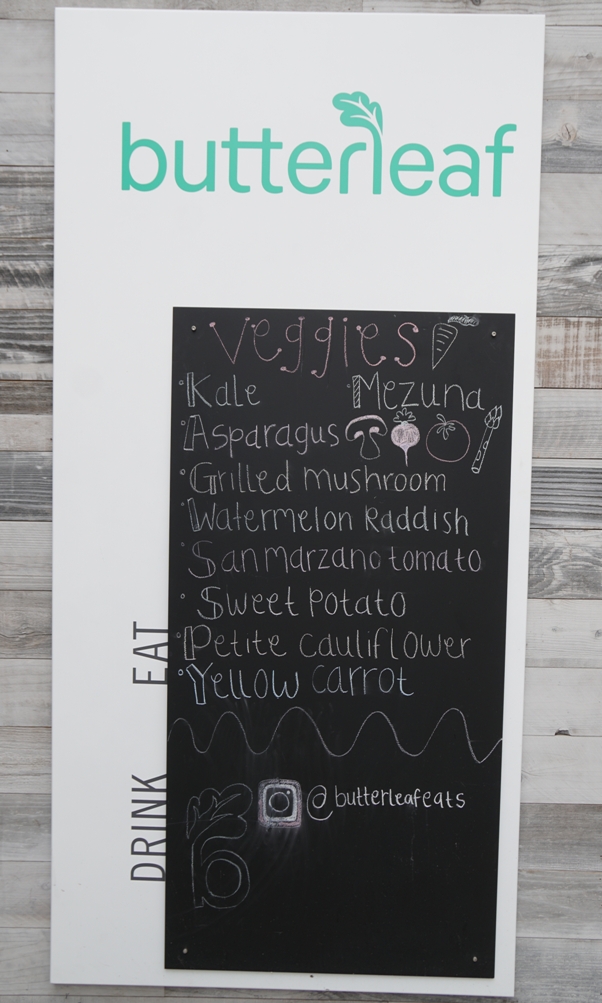 butterleaf
veggies
Kale Mezuna
Asparagus
Grilled mushroom
Watermelon Raddish
San marzano tomato
Sweet Potato
Petite cauliflower
Yellow carrot
@butterleafeats
b
DRINK EAT